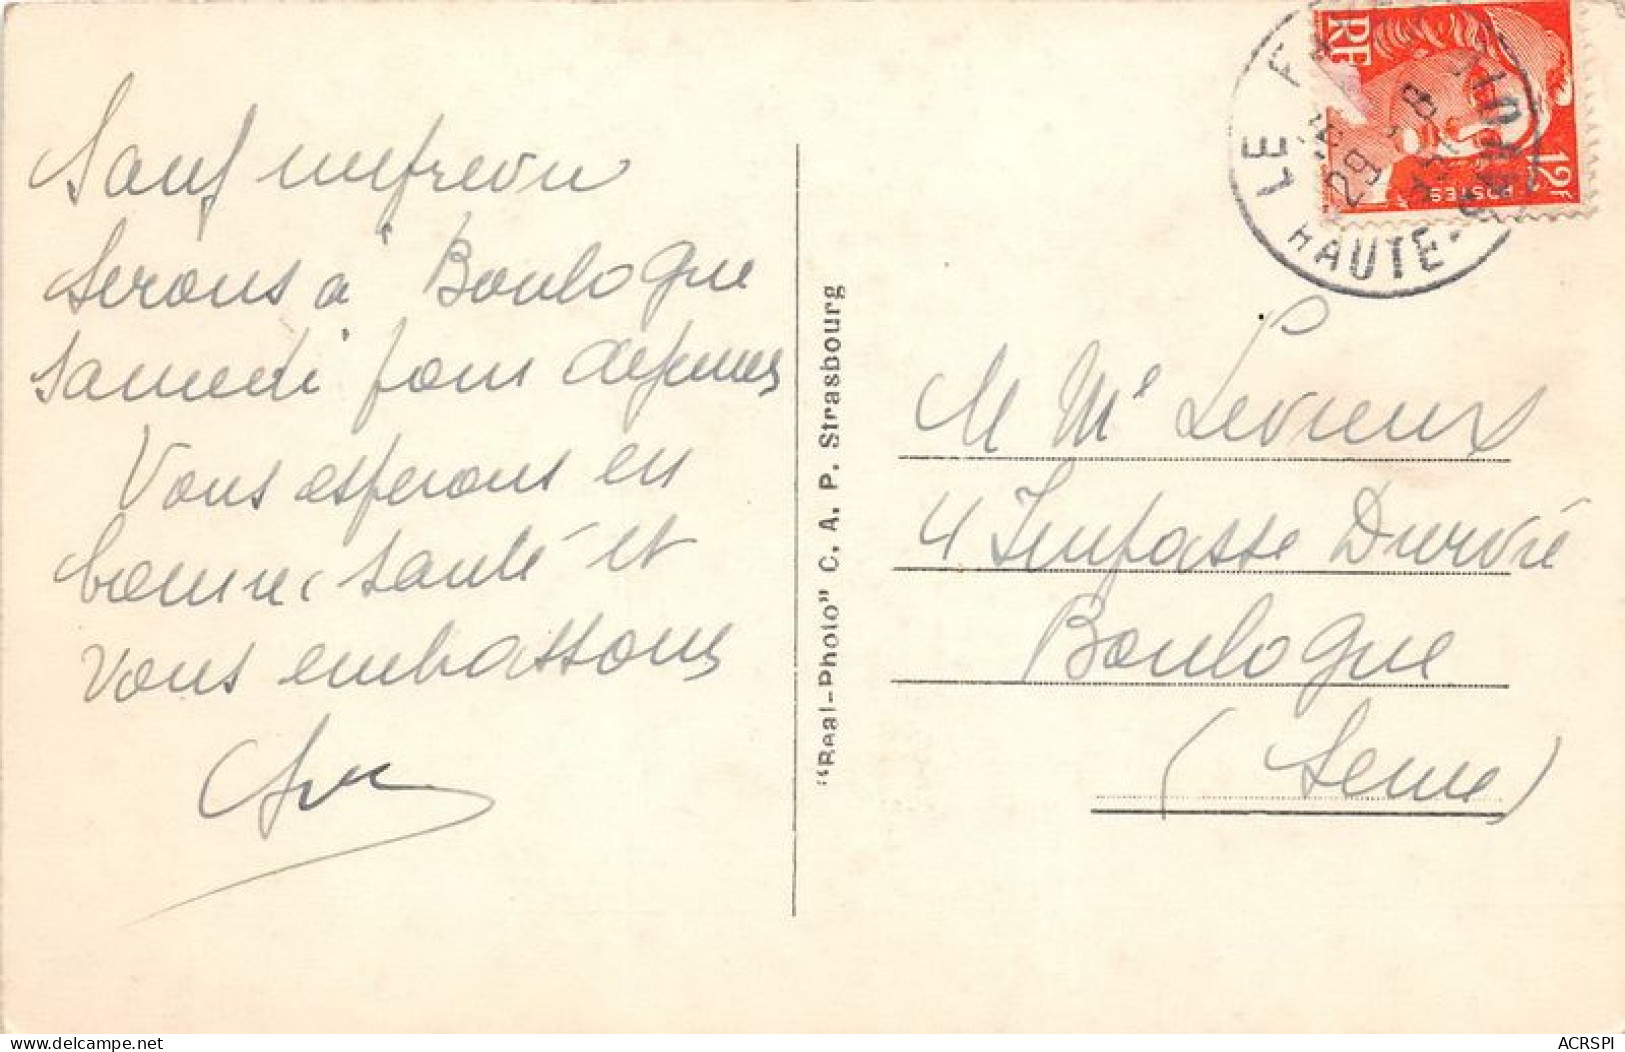 Sauf imprévu
serons à Boulogne
samedi pour déjeuner
Vous espérons en
bonne santé et
vous embrassons
"Real-Photo" C. A. P. Strasbourg
RF
12F
POSTES
LE
29 - 8
HAUTE-
M Me Levieux
4 Impasse Durvie
Boulogne
(Seine)
delcampe.net
ACRSPI